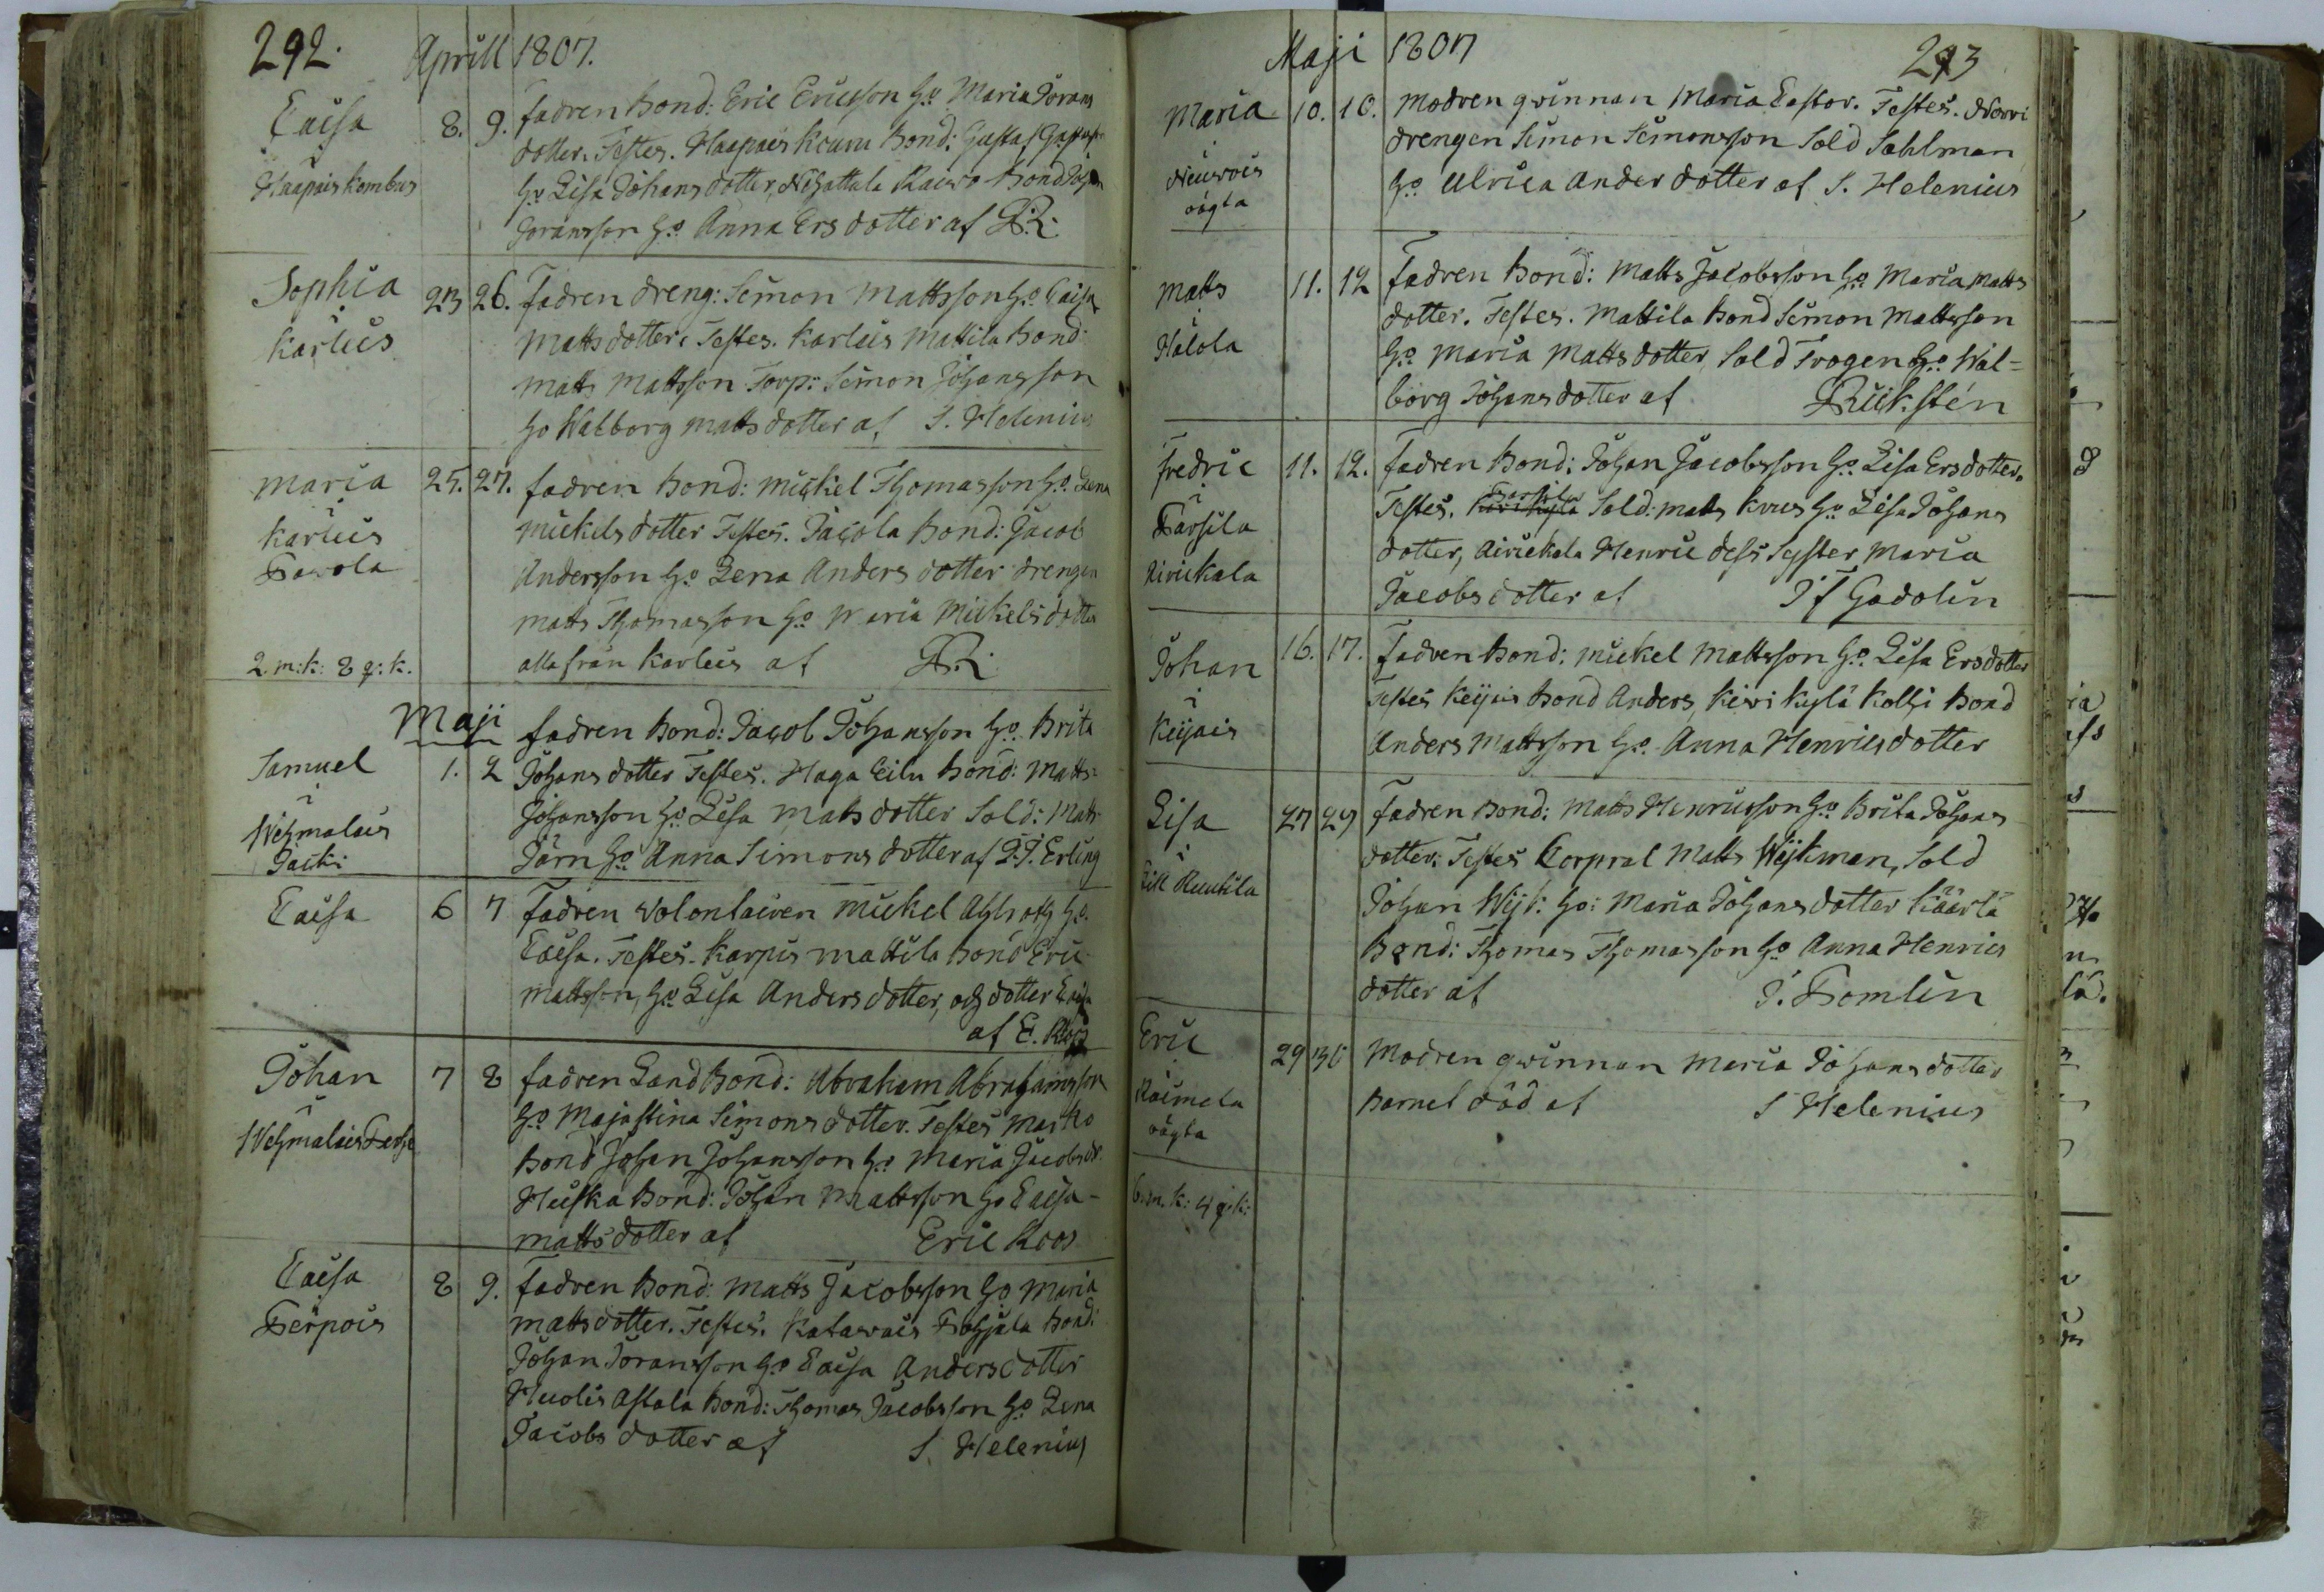 292.
Aprill 1807.
Caisa 8. 9. fadren Bond: Eric Ericsson ho Maria Jörans
i dotter. Testes. Haapais Kouvu Bond: Gustaf
Haapais Kombus ho Lisa Johans dotter, Nihattula Raiwo Bond Johan
Göransson ho Anna Ers dotter af
Sophia 23 26. Fadren dreng: Simon Mattsson ho Caisa
i Matts dotter, Testes. Karluis Mattila Bond:
Karluis Matts Mattsson Torp: Simon Johansson
ho Walborg matts dotter af S. Helenius
Maria 25. 27. fadren Bond: Mickel Thomasson ho Lena
i Mickels dotter Testes. Jacola Bond: Jacob
Karluis Andersson ho Lena Anders dotter drengen
matts Thomasson ho Maria Mickels dotter
2 m:k: 8 q:k. alla från Karluis af
Maji fadren Bond: Jacob Johansson ho Brita
Samuel 1. 2 Johans dotter Testes. Haga Eilu Bond: Matts
i Johansson ho Lisa mats dotter Sold: Matts
Wehmalais Järn ho Anna Simons dotter af Erling
Jacki
Caisa 6 7 Fadren Volontairen Mickel ho
Caisa. Testes. Karpis mattila Bond Eric
mattsson, ho Lisa Anders dotter, och dotter Caisa
af E. Roos
Johan 7 8 fadren Land Bond: Abraham Abrahamsson
i ho Majastina Simons dotter. Testes Marko
Wehmalais Bond Johan Johansson ho Maria Jacobs dr
Huska Bond: Johan Mattsson ho Caisa
matts dotter af Eric Roos
Caisa 8 9. Fadren Bond: Matts Jacobsson ho Maria
Perpois matts dotter. Testes. Katawais Pohjala Bond:
Johan Jöransson ho Caisa Anders dotter
Huolis Astala Bond: Thomas Jacobsson ho Lena
Jacobs dotter af S. Helenius
Maji 1807
293
Maria 10. 10. Modren qwinnan Maria Castor. Testes. Norri
i drengen Simon Simonsson Sold Sahlman
Neuwois ho Ulrica Ander dotter af S. Helenius
rågta
Matts 11. 12 Fadren Bond: Matts Jacobsson ho Maria Matts
i dotter. Testes. Mattila Bond Simon Mattsson
Halola ho Maria Matts dotter, Sold Trogen ho Wal=
borg Johans dotter af Rückstén
Fredric 11. 12. fadren Bond: Johan Jacobsson ho Lisa Ers dotter.
i Testes. Parsila Sold: matts Krus ho Lisa Johans
Parsila dotter, Airickala Henric dess Syster Maria
Airickala Jacobs dotter af J F Gadolin
Johan 16. 17. Fadren Bond: Mickel Mattsson ho Lisa Ers dotter
i Testes Keijais Bond Anders, Kiwi Kylä Kolhi Bond
Keijais Anders Mattsson ho Anna Henrics dotter
Lisa 27 29 Fadren Bond: Matts Henricsson ho Brita Johans
i dotter: Testes Corpral Matts Wijkman, Sold
Lill Ruutila Johan Wijk: ho: Maria Johans dotter Käärlä
Bond: Thomas Thomasson ho Anna Henrics
dotter af J. Pomlin
Eric 29 30 Modren qwinnan Maria Johans dotter
i Barnet död af S Helenius
Raimela
rågta
6. m. k: 4 q:k: